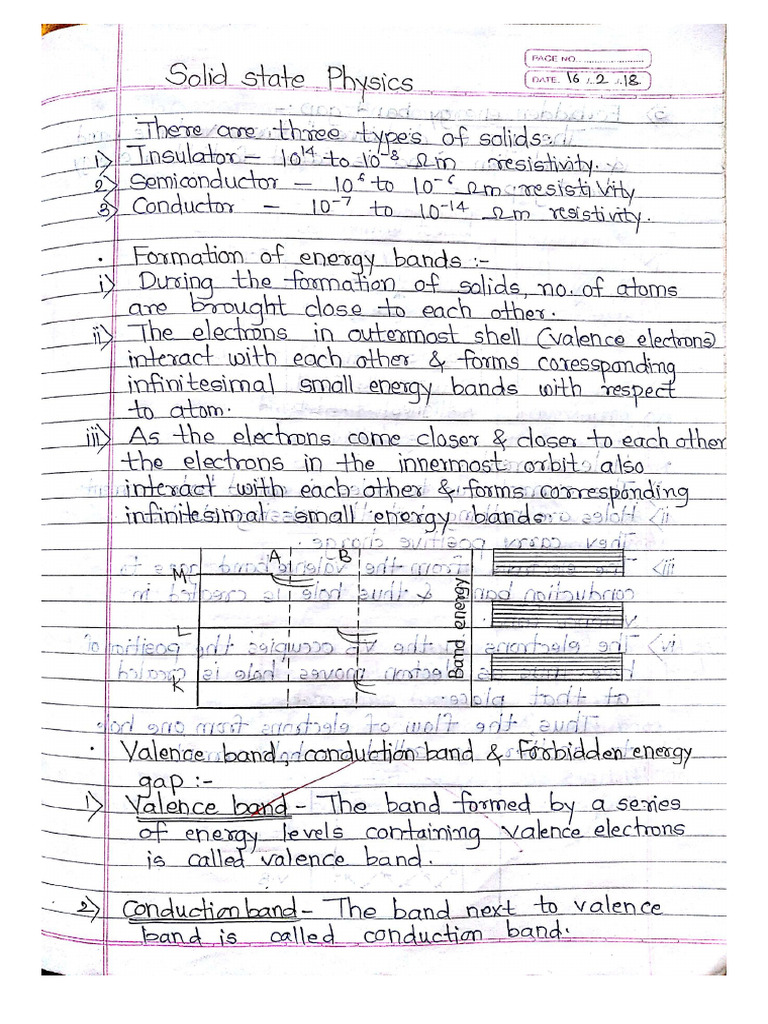 PAGE NO.
DATE. 16 / 2 / 18
Solid state Physics
There are three types of solids:
1) Insulator – 10¹⁴ to 10⁻⁸ Ωm resistivity.
2) Semiconductor – 10⁶ to 10⁻⁶ Ωm resistivity
3) Conductor – 10⁻⁷ to 10⁻¹⁴ Ωm resistivity.
· Formation of energy bands :-
i) During the formation of solids, no. of atoms
are brought close to each other.
ii) The electrons in outermost shell (valence electrons)
interact with each other & forms coresspanding
infinitesimal small energy bands with respect
to atom.
iii) As the electrons come closer & closer to each other
the electrons in the innermost orbit also
interact with each other & forms corresponding
infinitesimal small energy bands.
A B
M
L
K
Band energy
· Valence band, conduction band & Forbidden energy
gap :-
1) Valence band – The band formed by a series
of energy levels containing valence electrons
is called valence band.
2) Conduction band – The band next to valence
band is called conduction band.